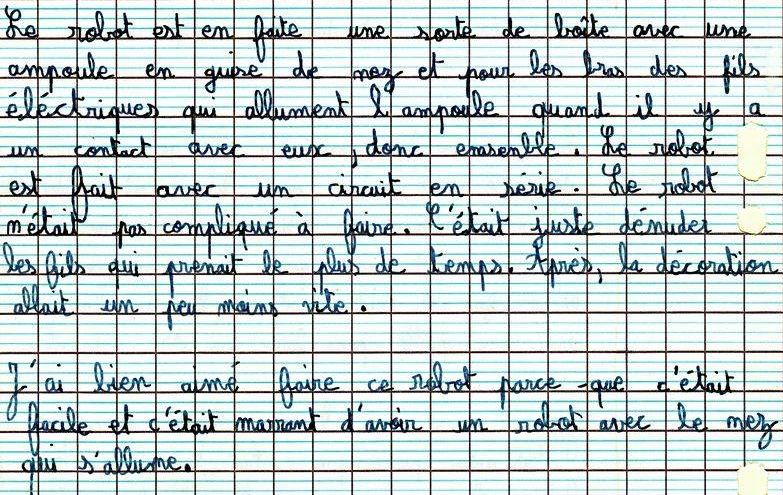 Le robot est en faite une sorte de boîte avec une
ampoule en guise de nez et pour les bras des fils
éléctriques qui allument l'ampoule quand il y a
un contact avec eux, donc ensemble. Le robot
est fait avec un circuit en série. Le robot
n'était pas compliqué à faire. C'était juste dénuder
les fils qui prenait le plus de temps. Après, la décoration
allait un peu moins vite.
J'ai bien aimé faire ce robot parce-que c'était
facile et c'était marrant d'avoir un robot avec le nez
qui s'allume.